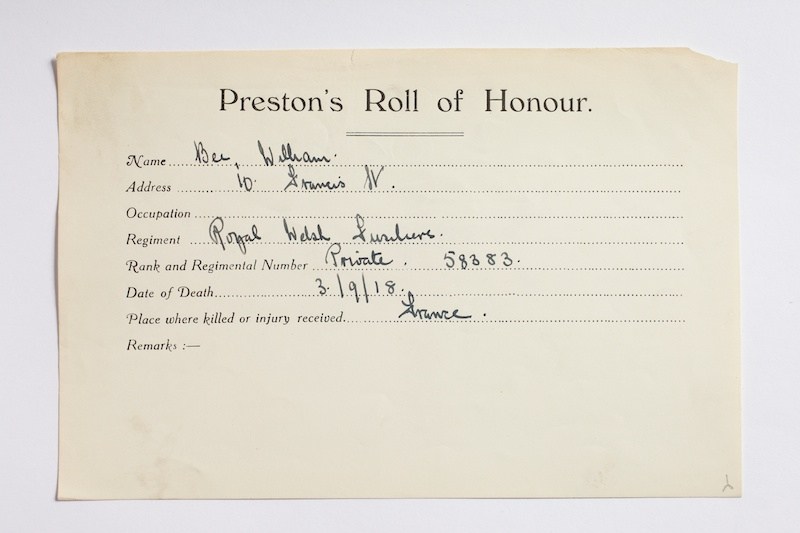 Preston's Roll of Honour.
Name Bee, William.
Address 10. Francis St.
Occupation
Regiment Royal Welsh Fusiliers.
Rank and Regimental Number Private. 58383.
Date of Death 3/9/18.
Place where killed or injury received France.
Remarks :—